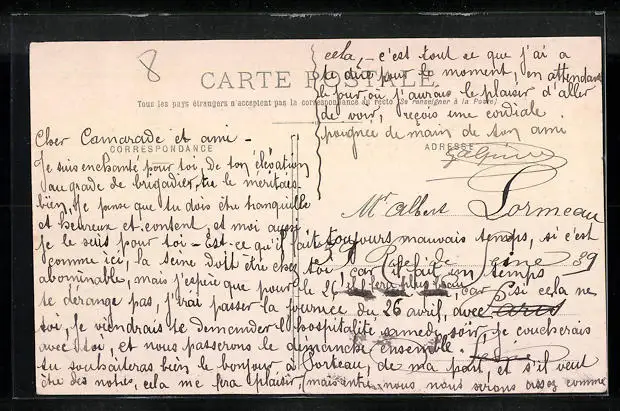 8
CARTE POSTALE
Tous les pays étrangers n'acceptent pas la correspondance au recto (Se renseigner à la Poste)
CORRESPONDANCE
ADRESSE
Cher Camarade et ami -
Je suis enchanté pour toi, de ton élévation
au grade de brigadier, tu le méritais
bien, Je pense que tu dois être tranquille
et heureux et content, et moi aussi
je le suis pour toi - Est-ce qu'il fait toujours mauvais temps, si c'est
comme ici, la Seine doit être chez toi, car il fait un temps
abominable, mais j'espère que pour le 26 il fera plus beau, car si cela ne
te dérange pas, j'irai passer la journée du 26 avril, avec
toi, je viendrais te demander l'hospitalité samedi soir, je coucherais
avec toi, et nous passerons le dimanche ensemble.
tu souhaiteras bien le bonjour à Porteau, de ma part, et s'il veut
être des notres, cela me fera plaisir, (mais entre nous nous serons assez comme
cela, - c'est tout ce que j'ai a
te dire pour le moment, en attendant
le jour, où j'aurais le plaisir d'aller
te voir, reçois une cordiale
poignée de main de ton ami
Mr Albert Lormeau
39 Rue de Seine
Paris